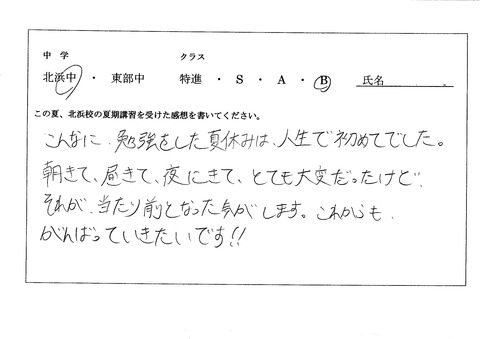 中学 クラス
北浜中 ・ 東部中 特進 ・ S ・ A ・ B 氏名
この夏、北浜校の夏期講習を受けた感想を書いてください。
こんなに、勉強をした夏休みは、人生で初めてでした。
朝きて、昼きて、夜にきて、とても大変だったけど、
それが、当たり前となった気がします。これからも、
がんばっていきたいです!!